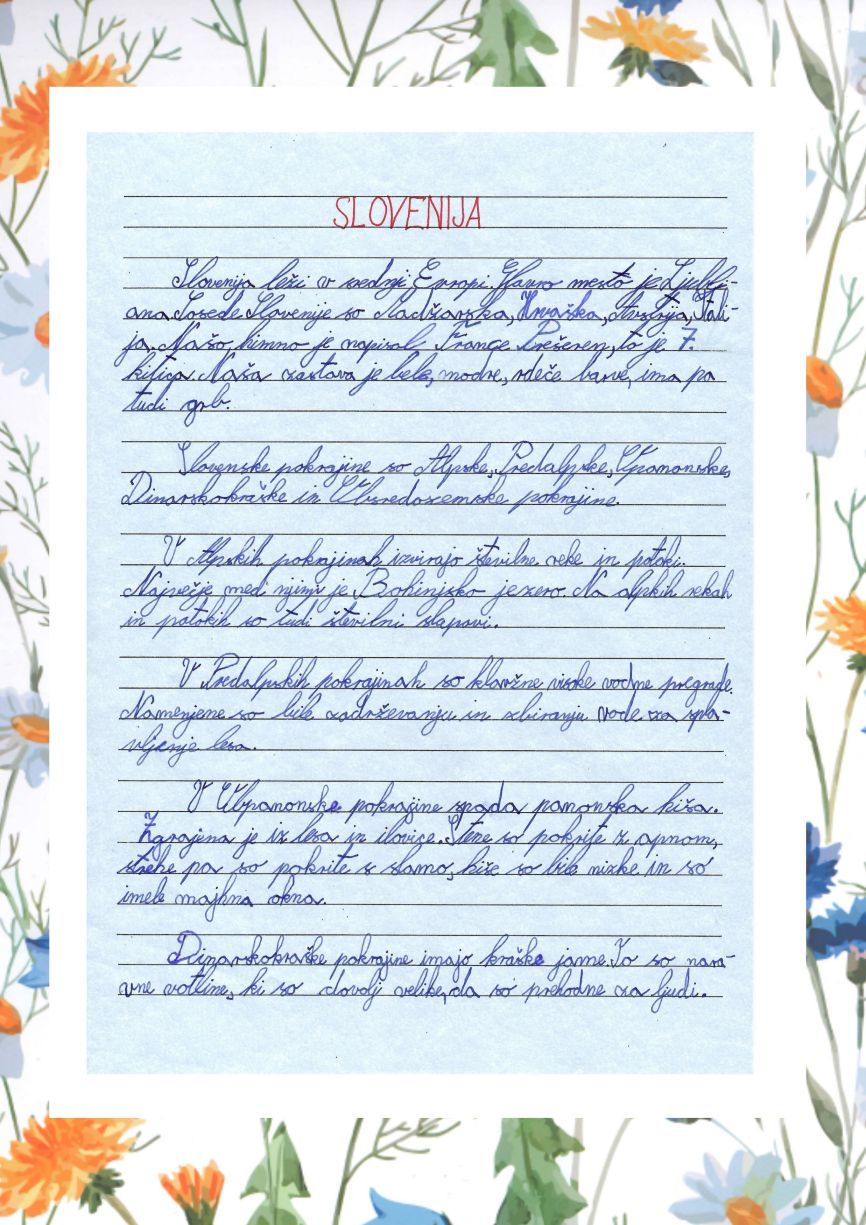 SLOVENIJA
Slovenija leži v srednji Evropi. Glavno mesto je Ljublj-
ana. Sosede Slovenije so Madžarska, Hrvaška, Avstrija, Itali-
ja. Našo himno je napisal France Prešeren, to je 7.
kitica. Naša zastava je bele, modre, rdeče barve, ima pa
tudi grb.
Slovenske pokrajine so Alpske, Predalpske, Obpanonske,
Dinarskokraške in Obsredozemske pokrajine.
V Alpskih pokrajinah izvirajo številne reke in potoki.
Največje med njimi je Bohinjsko jezero. Na alpkih rekah
in potokih so tudi številni slapovi.
V Predalpskih pokrajinah so klavžne visoke vodne pregrade.
Namenjene so bile zadrževanju in zbiranju vode za spla-
vljenje lesa.
V Obpanonske pokrajine spada panonska hiša.
Zgrajena je iz lesa in ilovice. Stene so pokrite z apnom,
strehe pa so pokrite s slamo, hiše so bile nizke in so
imele majhna okna.
Dinarskokraške pokrajine imajo kraške jame. To so nara-
vne votline, ki so dovolj velike, da so prehodne za ljudi.